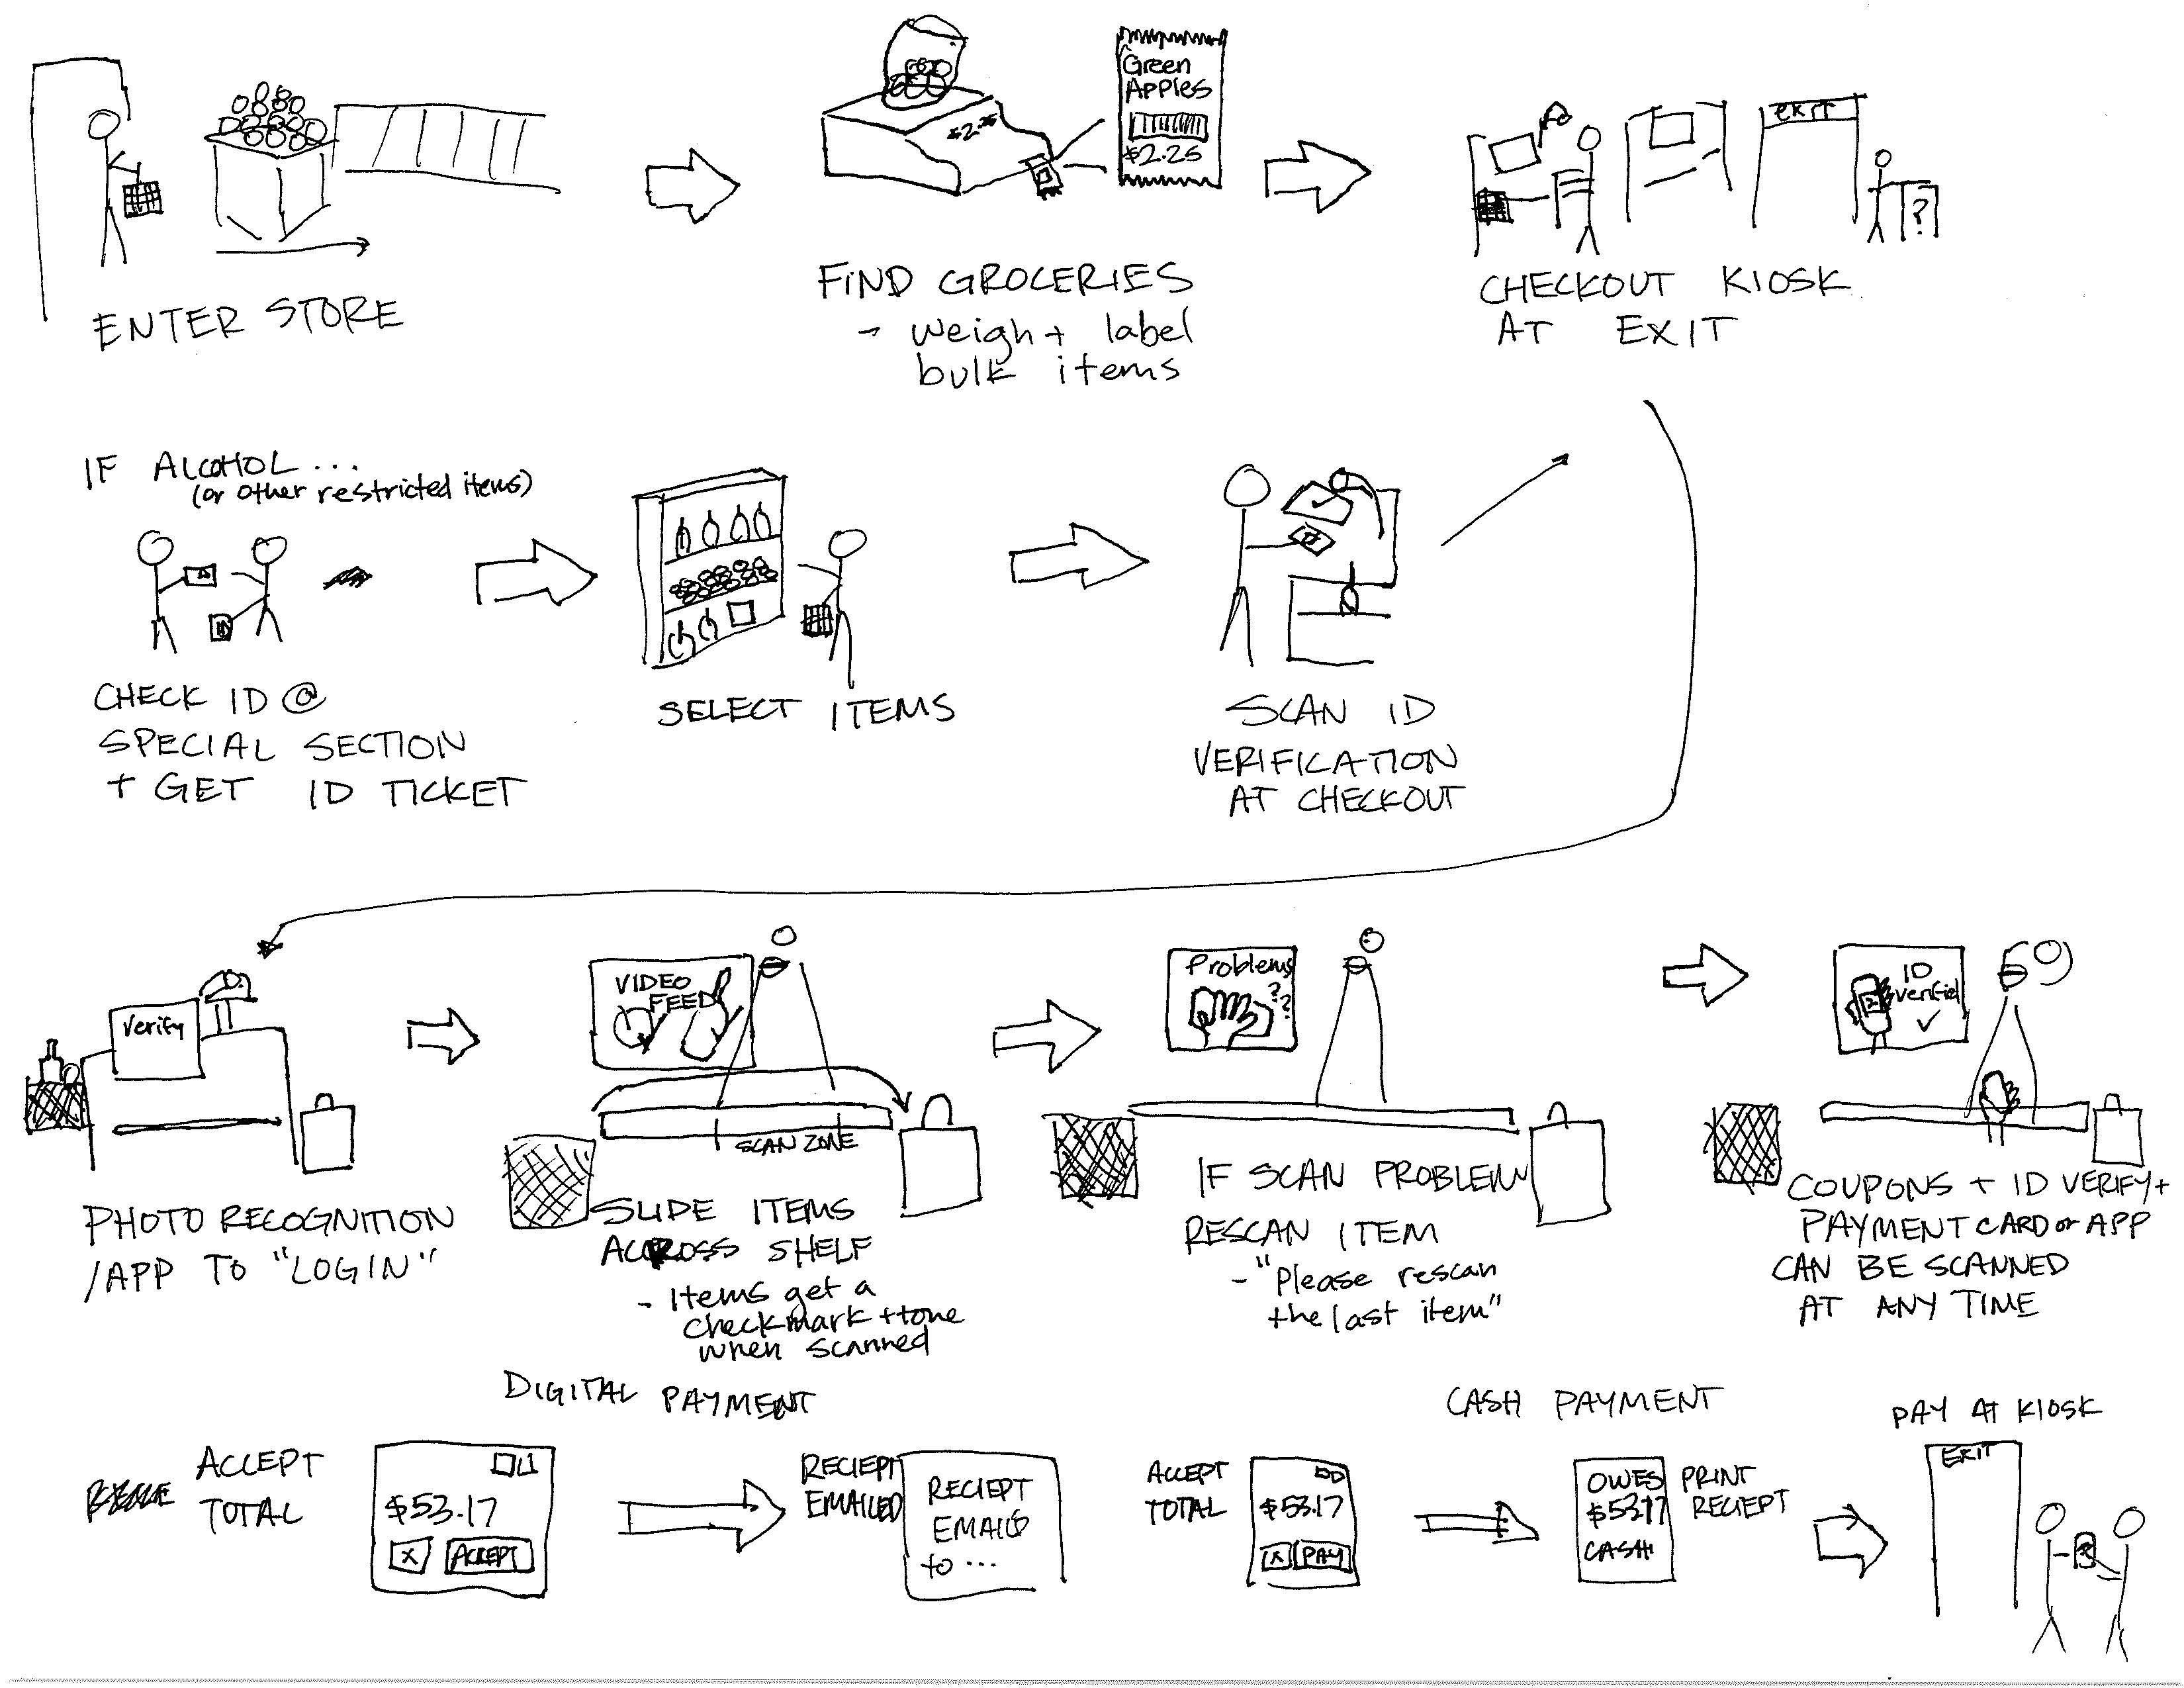 Green
Apples
$2.25
$2.25
EXIT
?
ENTER STORE
FIND GROCERIES
- weigh + label
bulk items
CHECKOUT KIOSK
AT EXIT
IF ALCOHOL...
(or other restricted items)
CHECK ID @
SPECIAL SECTION
+ GET ID TICKET
SELECT ITEMS
SCAN ID
VERIFICATION
AT CHECKOUT
Verify
VIDEO
FEED
SCAN ZONE
Problems
???
ID
Verified
PHOTO RECOGNITION
/APP TO "LOGIN"
SLIDE ITEMS
ACROSS SHELF
- Items get a
checkmark + tone
when scanned
IF SCAN PROBLEM
RESCAN ITEM
- "Please rescan
the last item"
COUPONS + ID VERIFY +
PAYMENT CARD or APP
CAN BE SCANNED
AT ANY TIME
DIGITAL PAYMENT
ACCEPT
TOTAL
$53.17
X ACCEPT
RECIEPT
EMAILED
RECIEPT
EMAILED
to ...
CASH PAYMENT
ACCEPT
TOTAL
$53.17
X PAY
OWES
$53.17
CASH
PRINT
RECIEPT
PAY AT KIOSK
EXIT